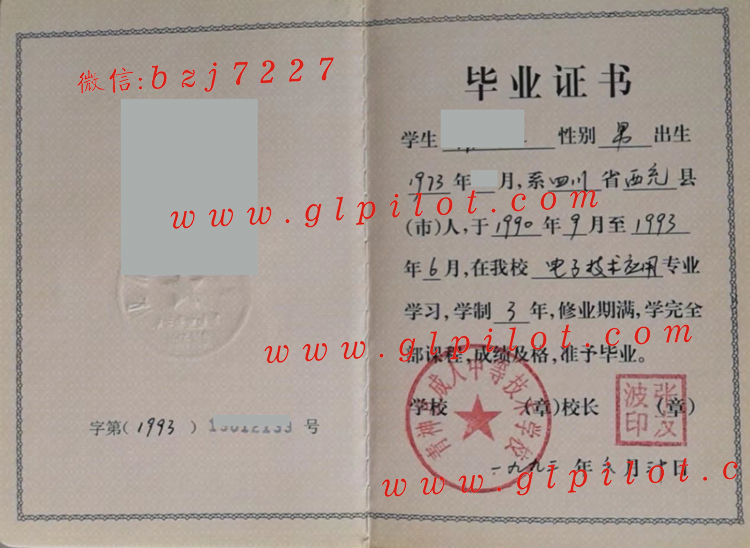 微信:bzj7227
字第(1993)号
毕业证书
学生 性别 男 出生
1973年 月,系四川省西充县
www.glpilot.com
(市)人,于1990年9月至1993
年6月,在我校 电子技术应用专业
学习,学制3年,修业期满,学完全
www.glpilot.com
部课程,成绩及格,准予毕业。
学校 (章)校长 (章)
青神县成人中等技术学校
张汉波印
一九九三年六月 日
www.glpilot.c